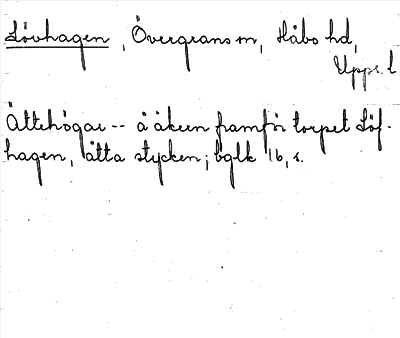 Lövhagen, Övergrans sn, Håbo hd,
Upps. l
Ättehögar -- å åkern framför torpet Löf-
hagen, åtta stycken; bglk 16, s.